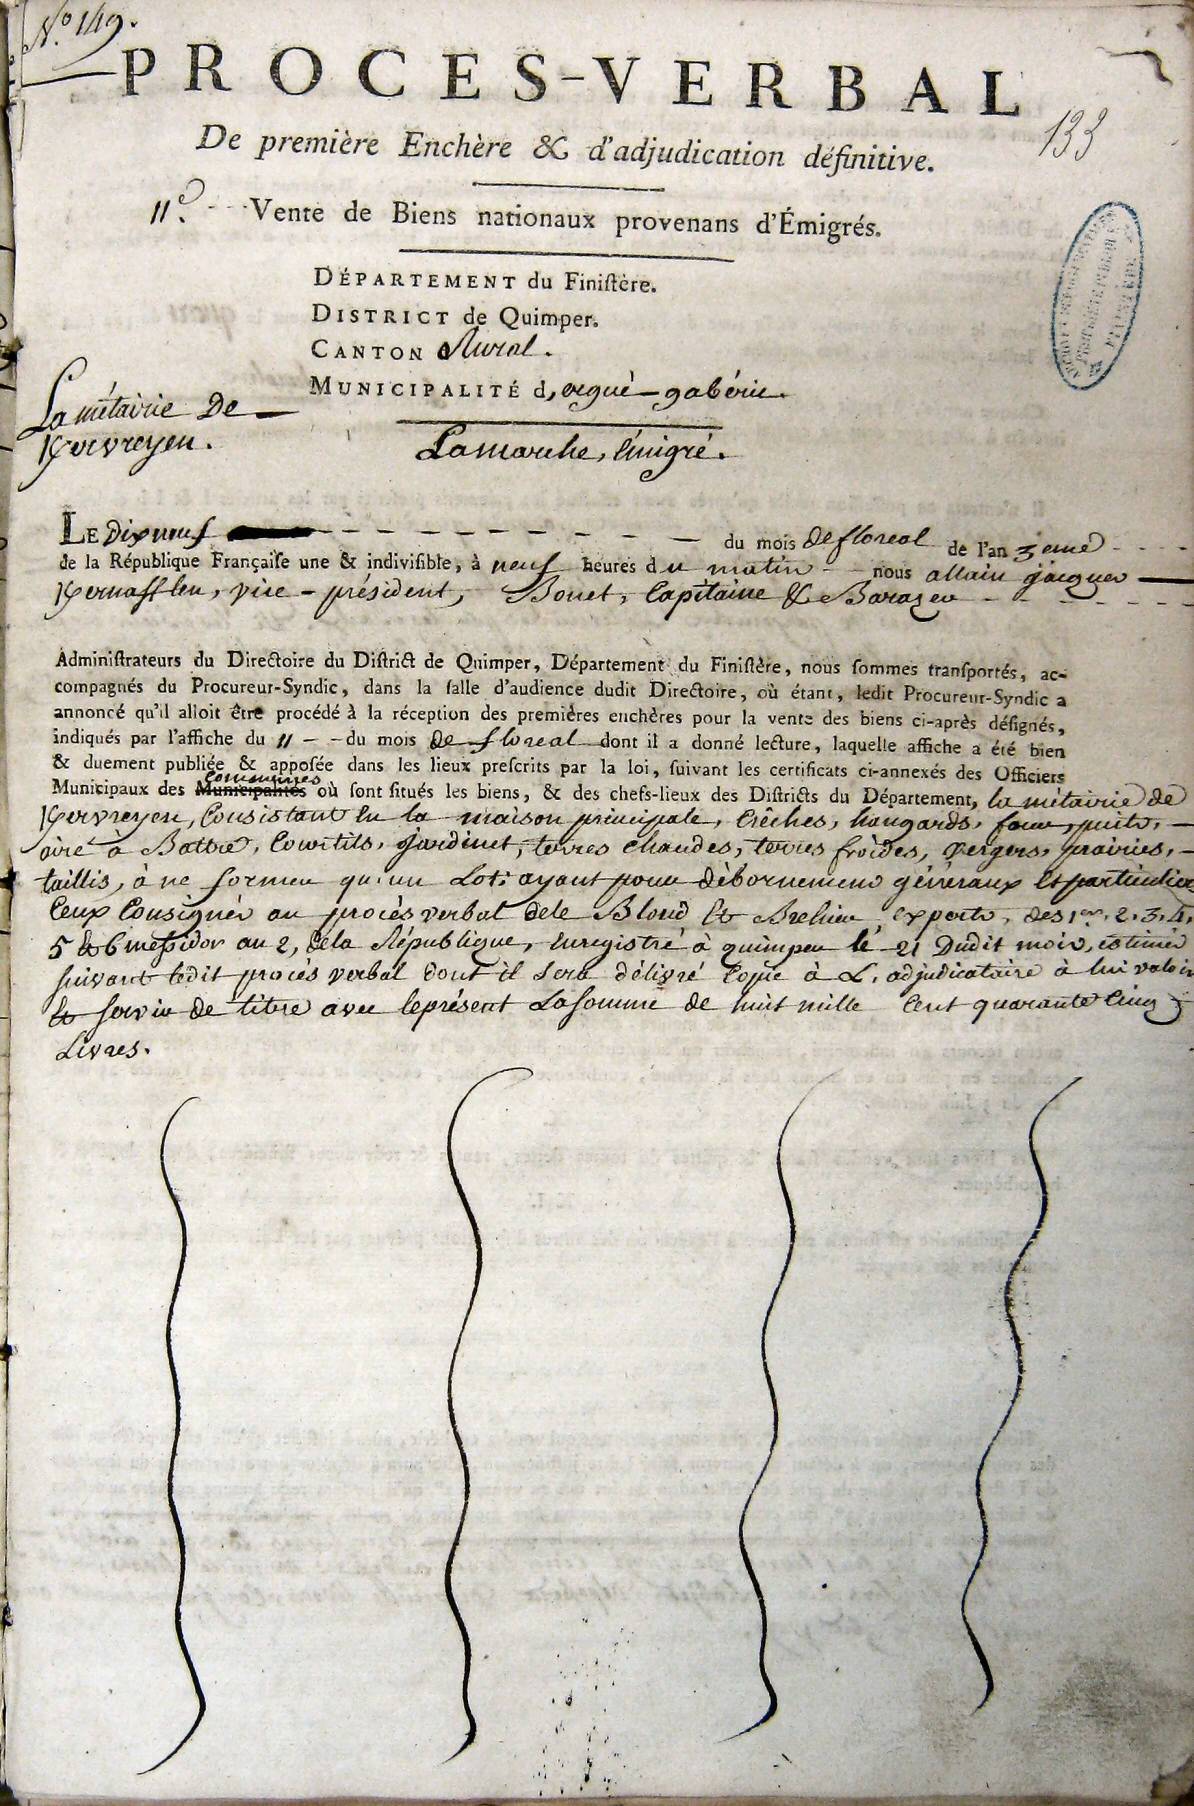 N.º 149.
PROCES-VERBAL
De première Enchère & d'adjudication définitive.
133
11.e Vente de Biens nationaux provenans d'Émigrés.
DÉPARTEMENT du Finistère.
DISTRICT de Quimper.
CANTON Rural.
MUNICIPALITÉ d'ergué-gabéric.
La métairie De
Kervreyen.
Lamarche, émigré.
LE dix neuf du mois de floreal de l'an 3eme
de la République Française une & indivisible, à neuf heures du matin nous allain jacques
Kernafflen, vice-président, Bonet, Capitaine & Barazer
Administrateurs du Directoire du District de Quimper, Département du Finistère, nous sommes transportés, ac-
compagnés du Procureur-Syndic, dans la salle d'audience dudit Directoire, où étant, ledit Procureur-Syndic a
annoncé qu'il alloit être procédé à la réception des premières enchères pour la vente des biens ci-après désignés,
indiqués par l'affiche du 11 du mois de floreal dont il a donné lecture, laquelle affiche a été bien
& duement publiée & apposée dans les lieux prescrits par la loi, suivant les certificats ci-annexés des Officiers
communes
Municipaux des Municipalités où sont situés les biens, & des chefs-lieux des Districts du Département, la métairie de
Kervreyen, Consistant en la maison principale, crèches, hangards, four, puits,
aire à Battre, Courtils, jardinet, terres chaudes, terres froides, vergers, prairies,
taillis, à ne former qu'un Lot: ayant pour débornement généraux et particulier
Ceux Consignés au procès verbal de le Blond et Brelier, experts, des 1er, 2, 3, 4,
5 et 6 messidor an 2, de la République, enregistré à quimper le 21 Dudit mois, estimée
suivant ledit procès verbal dont il sera délivré Copie à L'adjudicataire à lui valoir
et servir de titre avec le présent La somme de huit mille Cent quarante Cinq
Livres.